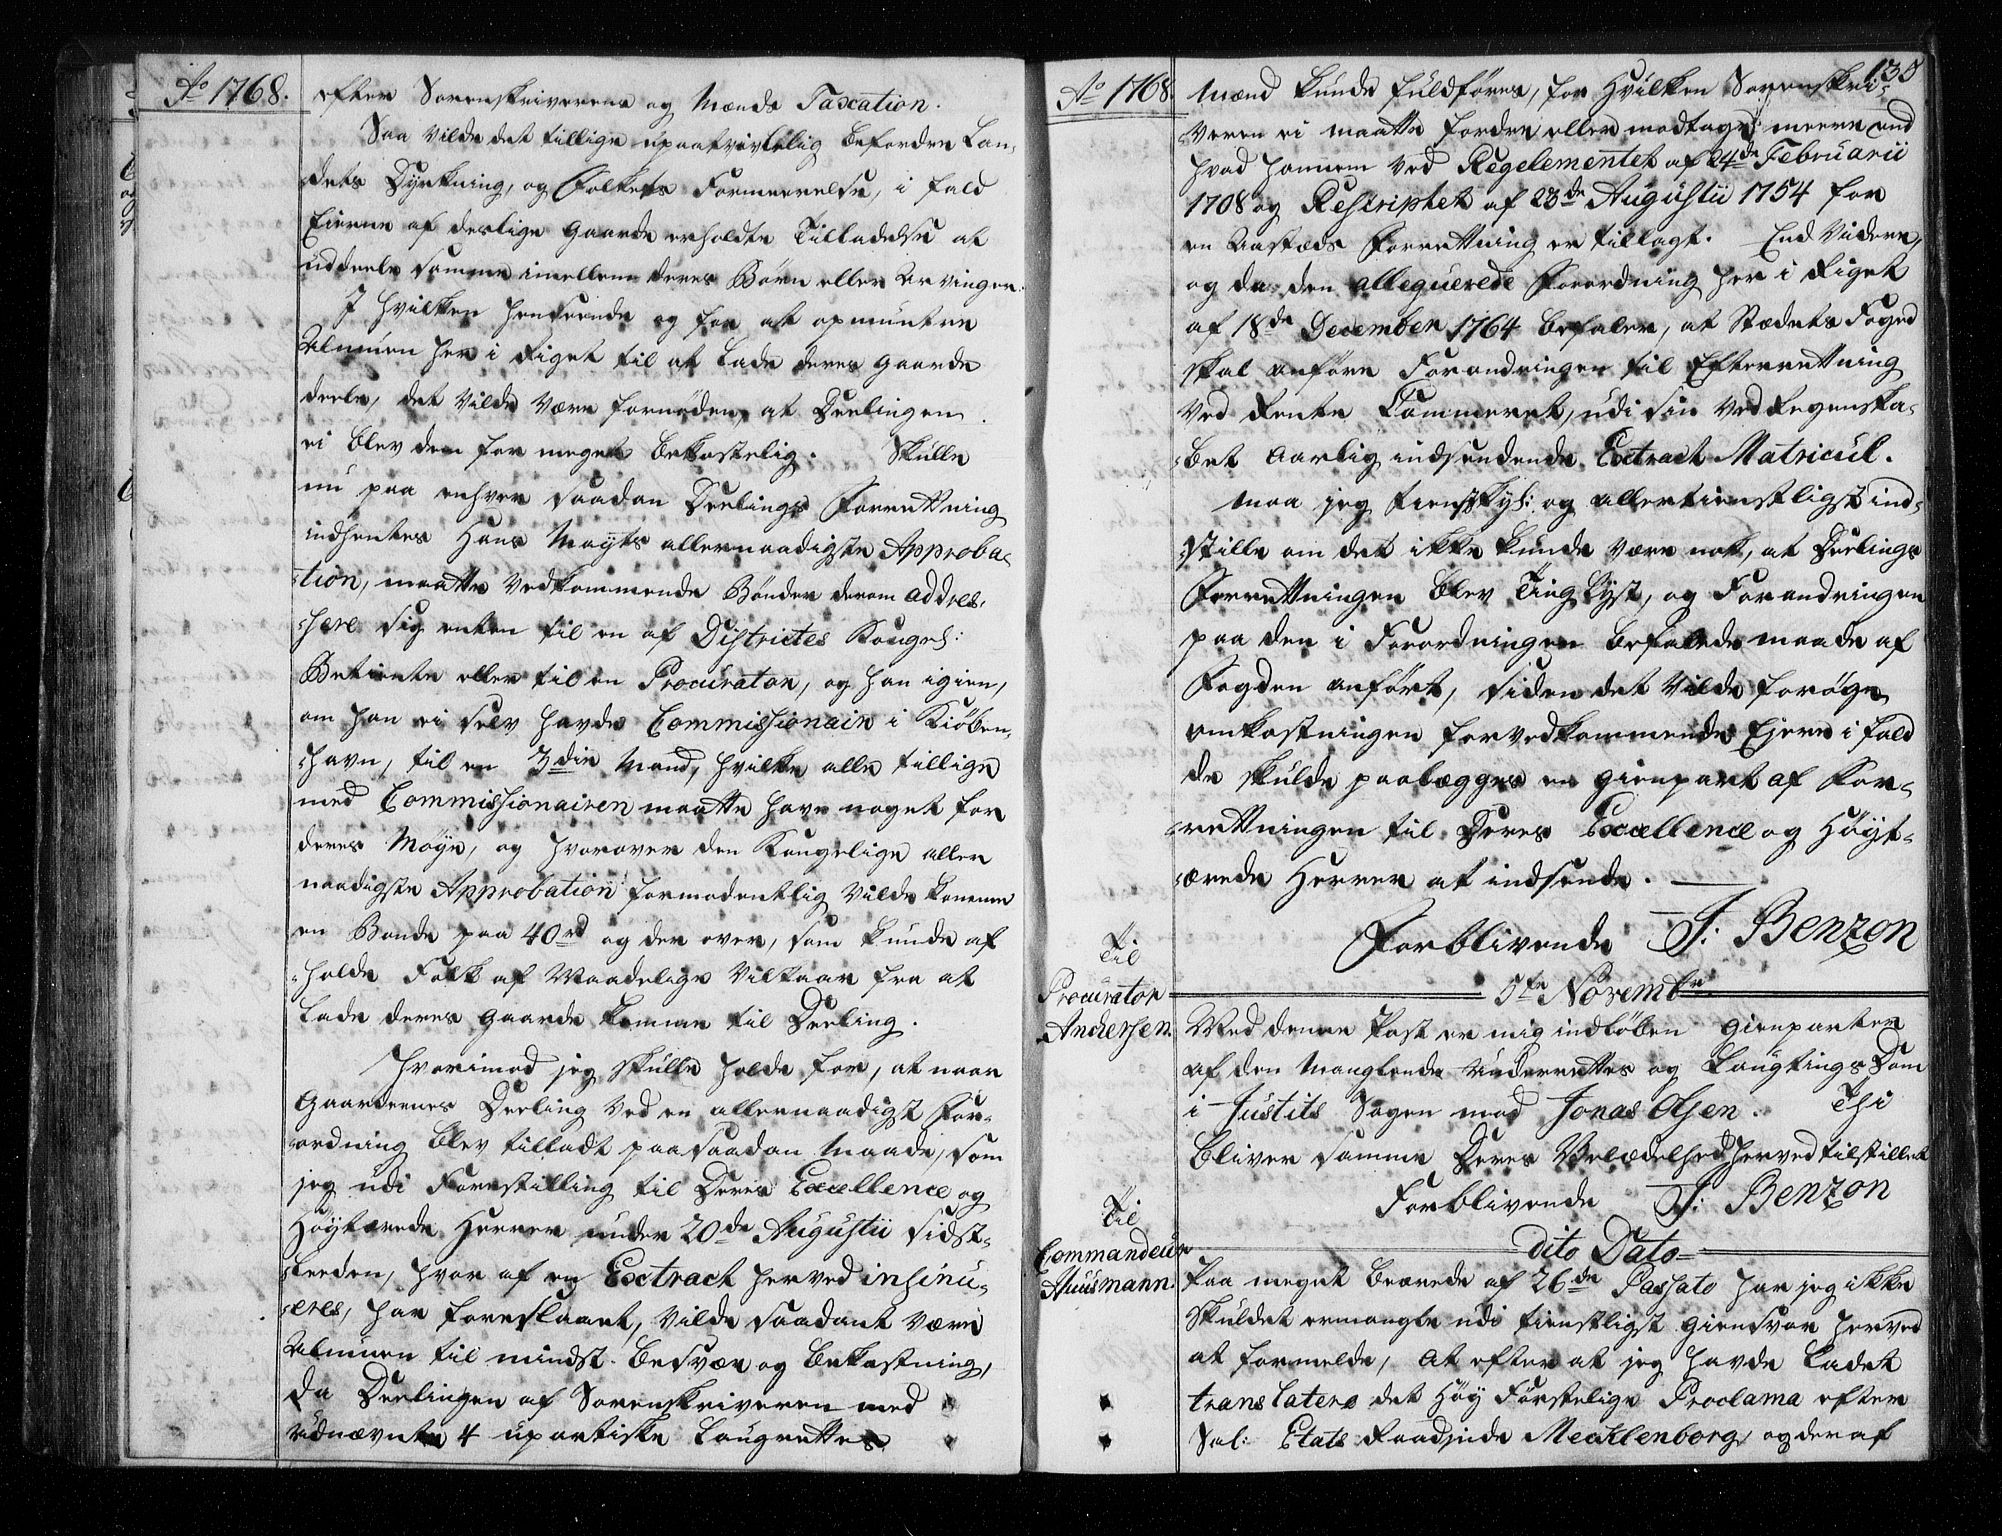 Ao 1768.
efter Sorenskriverens og Mænds Taxation.
Saa vilde det tillige upaatvivlelig befordre Lan-
dets Dyrkning, og Folkets Formeerelse, i fald
Eierne af deslige Gaarde erholdte Tilladelse at
uddeele samme imellem deres Børn eller Arvinger.
I hvilken Henseende og for at opmuntre
Almuen her i Riget til at lade deres Gaarde
deele, det vilde være fornøden, at Deelingen
ei blev dem for meget bekostelig. Skulle
nu paa enhver saadan Deelings Forrettning
indhentes Hans Mayts allernaadigste Approba-
-tion, maatte vedkommende Bønder derom addres-
-sere sig enten til en af Districtes Kongel:
Betiente eller til en Procurator, og han igien,
om han ei selv havde Commissionair i Kiøben-
-havn, til en 3die Mand, hvilke alle tillige
med Commissionairen maatte have noget for
deres Møye, og hvorover den Kongelige aller
naadigste Approbation formodentlig vilde komme
en Bonde paa 40rd og der over, som kunde af
-holde Folk af Maadelige Vilkaar fra at
lade deres Gaarde komme til Deeling.
Hvorimod jeg skulle holde for, at naar
Gaardernes Deeling ved en allernaadigst For-
-ordning blev tilladt paa saadan Maade, som
jeg udi Forestilling til Deres Excellence og
Høytærede Herrer under 20de Augustii sidst-
-leeden, hvor af en Extract herved insinu-
-eres, har foreslaaet, vilde saadant være
Almuen til mindst besvær og bekostning,
da Deelingen af Sorenskriveren med
udnævnte 4 upartiske Laugrettes
130
Ao 1768
Mænd kunde fuldføres, for hvilken Sorenskri-
veren ei maatte fordre eller modtage meere end
hvad hannem ved Regelementet af 24de Februarii
1708 og Rescriptet af 23de Augustii 1754 for
en Aasteds Forrettning er tillagt. End videre,
og da den allequerede Forordning her i Riget
af 18de December 1764 befaler, at Stædets Foged
skal anføre Forandringen til Efterrettning
ved Rente Cammeret, udi sin ved Regenska-
-bet aarlig indsendende Extract Matricul.
Maa jeg tienstskyl: og allertienstligst ind-
-stille om det ikke kunde være nok, at Deelings
Forrettningen blev Ting lyst, og Forandringen
paa den i Forordningen befalede maade af
Fogden anført, siden det vilde forøge
omkostningen for vedkommende Ejere i fald
de skulde paalægges en gienpart af For-
-rettningen til Deres Excellence og Høyt-
-ærede Herrer at indsende.
Forblivende J: Benzon
5te Novembr.
Til
Procurator
Andersen.
Med denne Post er mig indløben Gienparter
af den manglende Underrettes og Laugtings Dom
i Justits Sagen mod Jonas Olsen. Thi
bliver samme Deres Velædelhed herved tilstillet
Forblivende J: Benzon
dito Dato
Til
Commandeur
Huusmann.
Paa meget beærede af 26de Passato har jeg ikke
skuldet ermangle udi tienstligst giensvar herved
at formelde, at efter at jeg havde ladet
translatere det Høy Førstelige Proclama efter
Sal: Etats Raadinde Mecklenborg, og der af